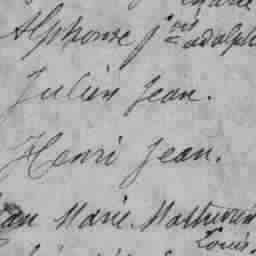 Alphonse Jn adolph
Julien Jean.
Henri Jean.
Marie. Mathurin
Louis.